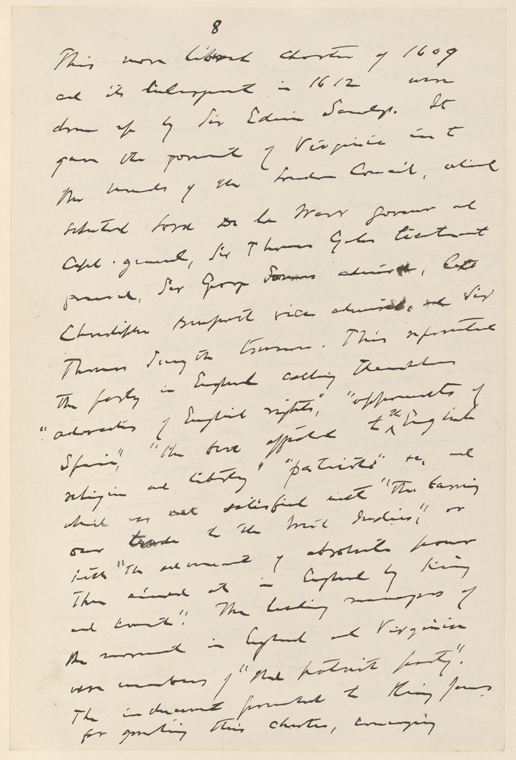 8
This more liberal charter of 1609
and its subsequent in 1612 were
drawn up by Sir Edwin Sandys. It
gave the government of Virginia into
the hands of the London Council, which
selected Lord De la Warr governor and
Capt. general, Sir Thomas Gates lieutenant
general, Sir George Somers admiral, Capt
Christopher Newport vice admiral, and Sir
Thomas Smythe treasurer. This represented
the party in England calling themselves
"advocates of English rights," "opponents of
Spain," "the best affected to the English
religion and liberty" "patriots" &c, and
which was not satisfied with "the
our trade to the West Indies," or
with "the advancement of absolute power
then aimed at in England by King
and court". The leading managers of
the movement in England and Virginia
were members of "the patriot party".
The inducement presented to King James
for granting this charter, conveying